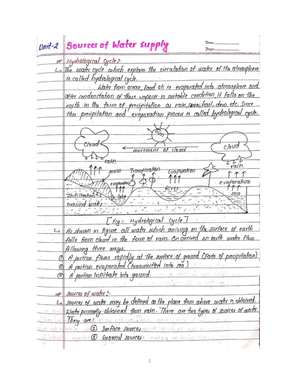 Unit-2 Sources of Water Supply
Date:
Page:
Hydrological Cycle:-
The water cycle which explain the circulation of water of the atmosphere
is called hydrological cycle.
Water from ocean, land etc is evaporated into atmosphere and
after condensation of these vapour in suitable condition, it falls on the
earth in the form of precipitation as rain, snow, hail, dew etc.
this precipitation and evaporation process is called hydrological cycle.
Sun
Cloud
movement of cloud
Cloud
rain
rain
snow
Transpiration
evaporation
evaporation
evaporation
River
ground water
[Fig:- Hydrological Cycle]
As shown in figure all water which arriving on the surface of earth
falls from cloud in the form of rain. On earth water flows
following three ways.
① A portion flows rapidly at the surface of ground (form of precipitation)
② A portion evaporated (transmitted into air)
③ A portion infiltrate into ground.
Sources of water:-
Sources of water may be defined as the place from where water is obtained.
Water primarily obtained from rain. There are two types of sources of water.
They are:
① Surface sources
② Ground sources
1